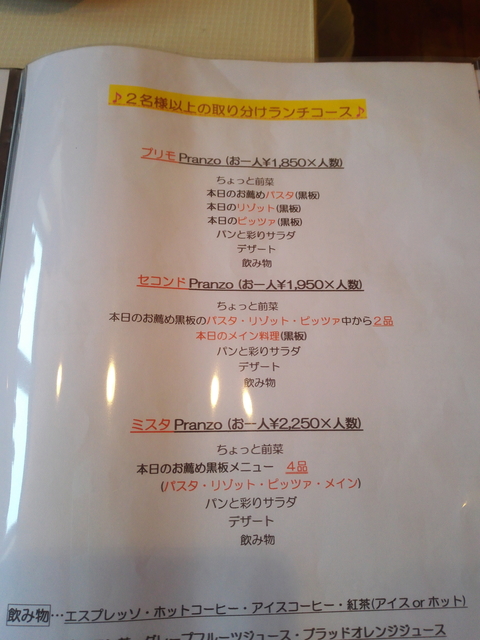 ♪２名様以上の取り分けランチコース♪
プリモ Pranzo (お一人¥1,850×人数)
ちょっと前菜
本日のお薦めパスタ(黒板)
本日のリゾット(黒板)
本日のピッツァ(黒板)
パンと彩りサラダ
デザート
飲み物
セコンド Pranzo (お一人¥1,950×人数)
ちょっと前菜
本日のお薦め黒板のパスタ・リゾット・ピッツァ中から２品
本日のメイン料理(黒板)
パンと彩りサラダ
デザート
飲み物
ミスタ Pranzo (お一人¥2,250×人数)
ちょっと前菜
本日のお薦め黒板メニュー　４品
(パスタ・リゾット・ピッツァ・メイン)
パンと彩りサラダ
デザート
飲み物
飲み物…エスプレッソ・ホットコーヒー・アイスコーヒー・紅茶(アイス or ホット)
グレープフルーツジュース・ブラッドオレンジジュース